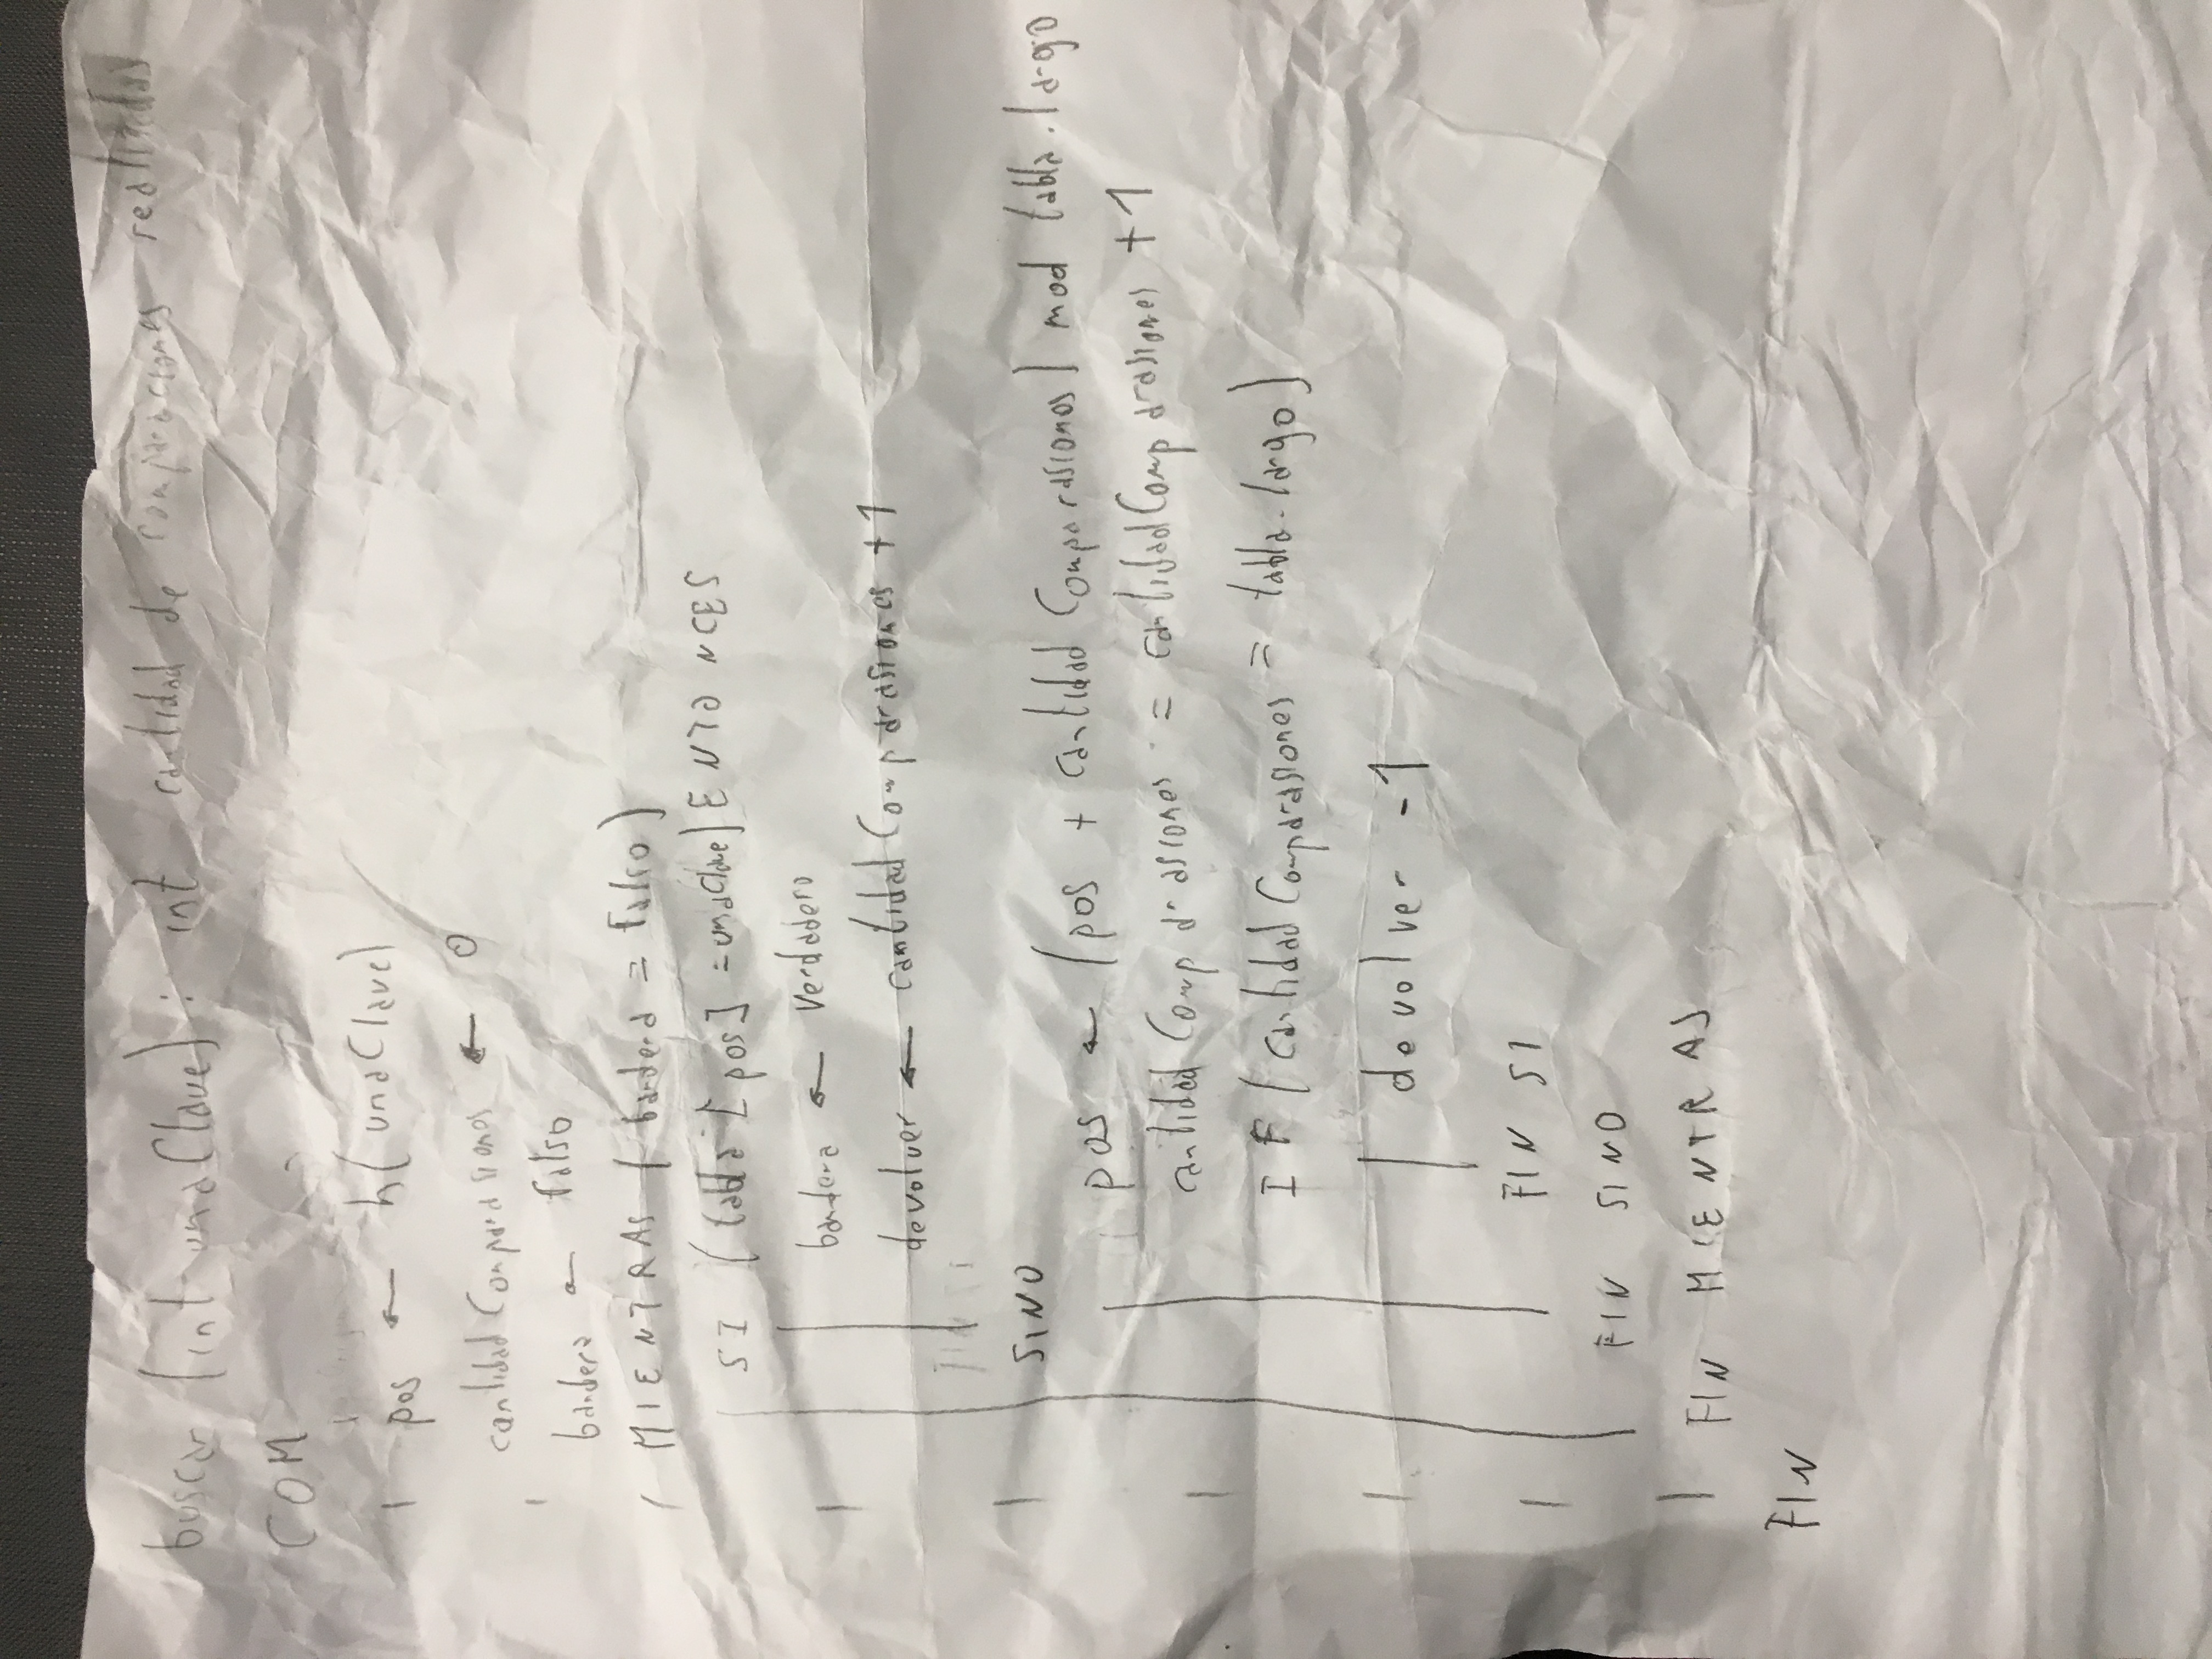 buscar (int unaClave) : int cantidad de comparaciones realizadas
COM
pos ← h(unaClave)
cantidadComparasiones ← 0
bandera ← falso
MIENTRAS (bandera = falso)
SI (tabla [pos] = unaClave) ENTONCES
bandera ← verdadero
devolver ← cantidadComparasiones +1
FIN SI
SINO
pos ← (pos + cantidadComparasiones) mod tabla.largo
cantidadComparasiones = cantidadComparasiones +1
IF (cantidadComparasiones = tabla.largo)
devolver -1
FIN SI
FIN SINO
FIN MIENTRAS
FIN